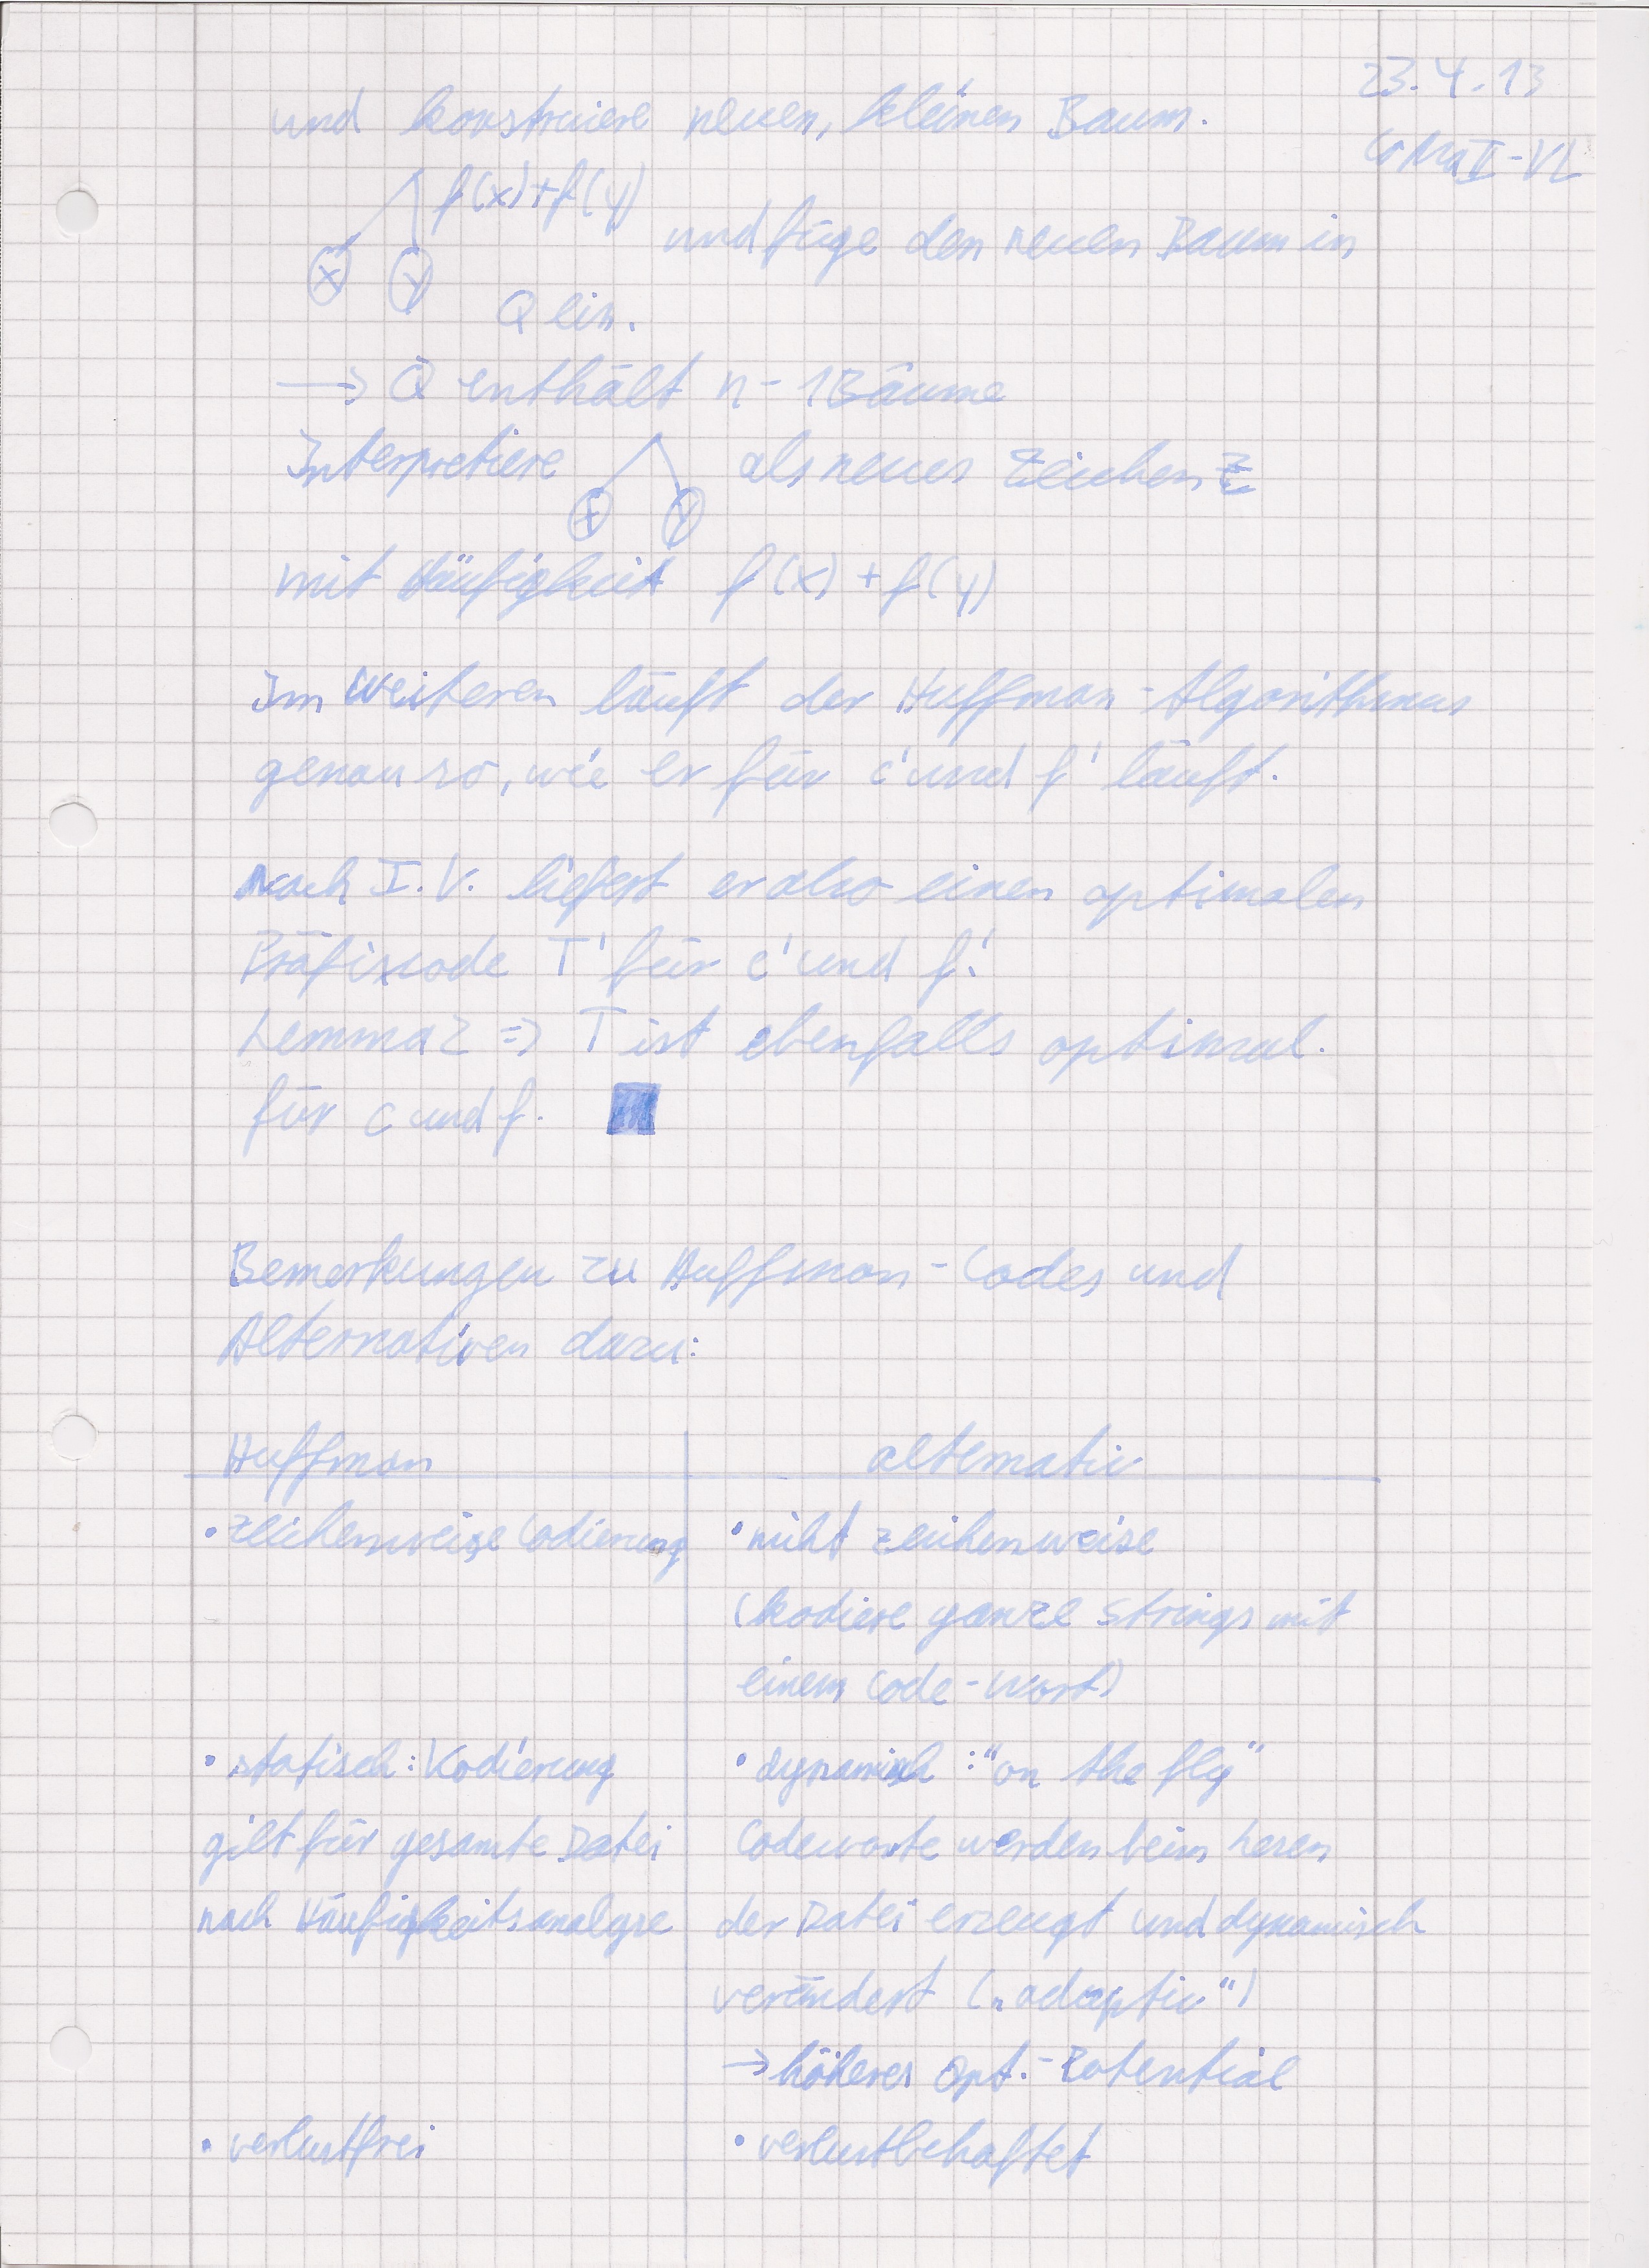 23.4.13
CoMa II-VL
und konstruiere neuen, kleinen Baum.
f(x)+f(y)
und füge den neuen Baum in
x y
Q ein.
→ Q enthält n-1 Bäume
Interpretiere als neues Zeichen z
x y
mit Häufigkeit f(x) + f(y)
Im Weiteren läuft der Huffman-Algorithmus
genau so, wie er für C' und f' läuft.
nach I.V. liefert er also einen optimalen
Präfixcode T' für C' und f'.
Lemma 2 ⇒ T ist ebenfalls optimal.
für C und f.
Bemerkungen zu Huffman-Codes und
Alternativen dazu:
Huffman alternativ
• zeichenweise Codierung • nicht zeichenweise
(kodiere ganze Strings mit
einem Code-Wort)
• statisch: Kodierung • dynamisch: "on the fly"
gilt für gesamte Datei Codeworte werden beim Lesen
nach Häufigkeitsanalyse der Datei erzeugt und dynamisch
verändert („adaptiv“)
→ höheres Opt.-Potential
• verlustfrei • verlustbehaftet